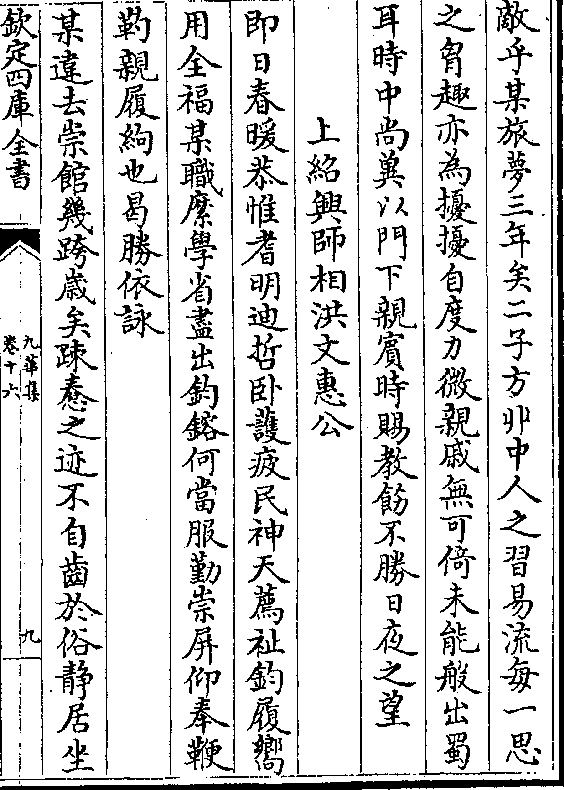 敵乎某旅夢三年矣二子方丱中人之習易流每一思
之胷趣亦為擾擾自度力微親戚無可倚未能般出蜀
耳時中尚冀以門下親賓時賜教飭不勝日夜之望
上紹興師相洪文惠公
即日春暖恭惟耆明迪哲卧護疲民神天薦祉鈞履嚮
用全福某職縻學省盡出鈞鎔何當服勤崇屏仰奉鞭
靮親履絇也曷勝依詠
某違去崇館幾跨歲矣踈惷之迹不自齒於俗靜居坐
欽定四庫全書
九華集
卷十六
九